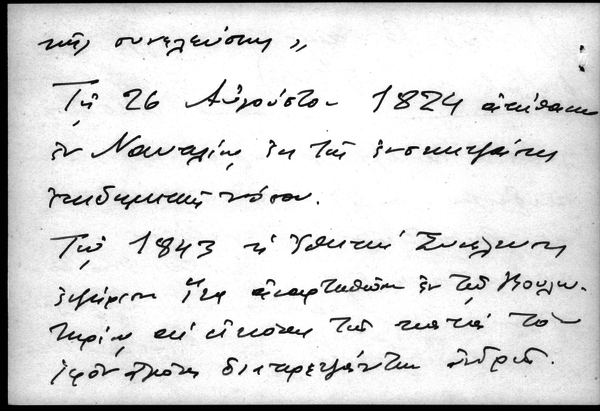 τικῆς συνελεύσεως »
Τῇ 26 Αὐγούστου 1824 ἀπέθανεν
ἐν Ναυπλίῳ ἐκ τῆς ἐνσκηψάσης
ἐπιδημικῆς νόσου.
Τῷ 1843 ἡ Ἐθνική Συνέλευσις
ἐψήφισεν ἵνα ἀναρτηθῶσιν ἐν τῷ Βουλευ-
τηρίῳ αἱ εἰκόνες τῶν κατά τόν
ἱερόν ἀγῶνα διαπρεψάντων ἀνδρῶν.